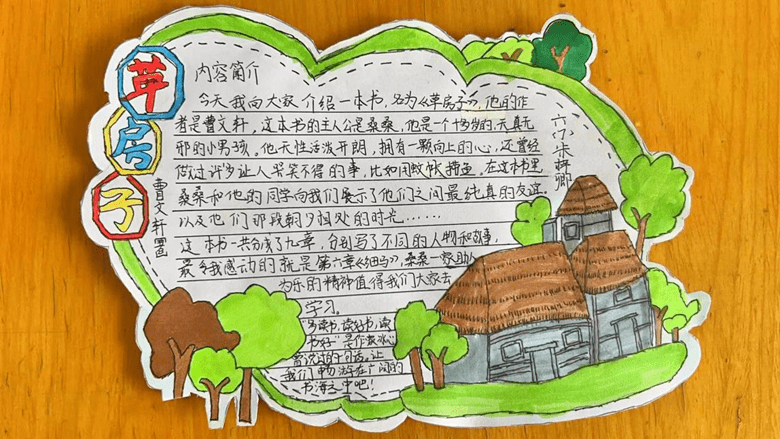 草
房
子
曹文轩置
内容简介
今天我向大家介绍一本书,名为《草房子》,他的作
者是曹文轩,这本书的主人公是桑桑,他是一个十多岁的天真无
邪的小男孩。他天性活泼开朗,拥有一颗向上的心,还曾经
做过许多让人哭笑不得的事,比如用蚊帐捕鱼,在这本书里
桑桑和他的同学向我们展示了他们之间最纯真的友谊,
以及他们那段朝夕相处的时光……
这本书一共分成了九章,分别写了不同的人物和故事,
最令我感动的就是第六章《细马》,桑桑一家助人
为乐的精神值得我们大家去
学习。
多读书,读好书,读
书好”是作家冰心
曾说过的一句话。让
我们畅游在广阔的
书海之中吧!
六(7)朱